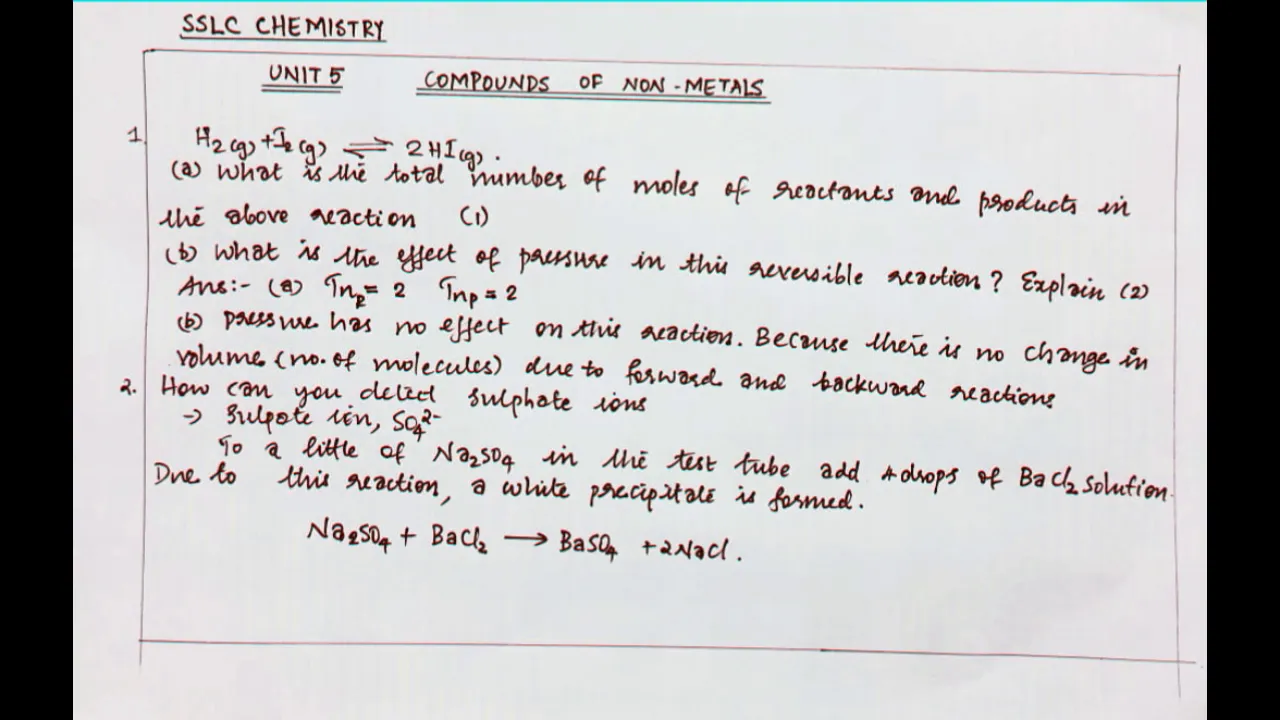 SSLC CHEMISTRY
UNIT 5 COMPOUNDS OF NON-METALS
1. H2(g) + I2(g) ⇌ 2HI(g).
(a) What is the total number of moles of reactants and products in
the above reaction (1)
(b) What is the effect of pressure in this reversible reaction? Explain (2)
Ans:- (a) TnR = 2 Tnp = 2
(b) pressure has no effect on this reaction. Because there is no change in
volume (no. of molecules) due to forward and backward reactions
2. How can you detect sulphate ions
→ Sulpate ion, SO4^2-
To a little of Na2SO4 in the test tube add drops of BaCl2 solution.
Due to this reaction, a white precipitate is formed.
Na2SO4 + BaCl2 → BaSO4 + 2NaCl.